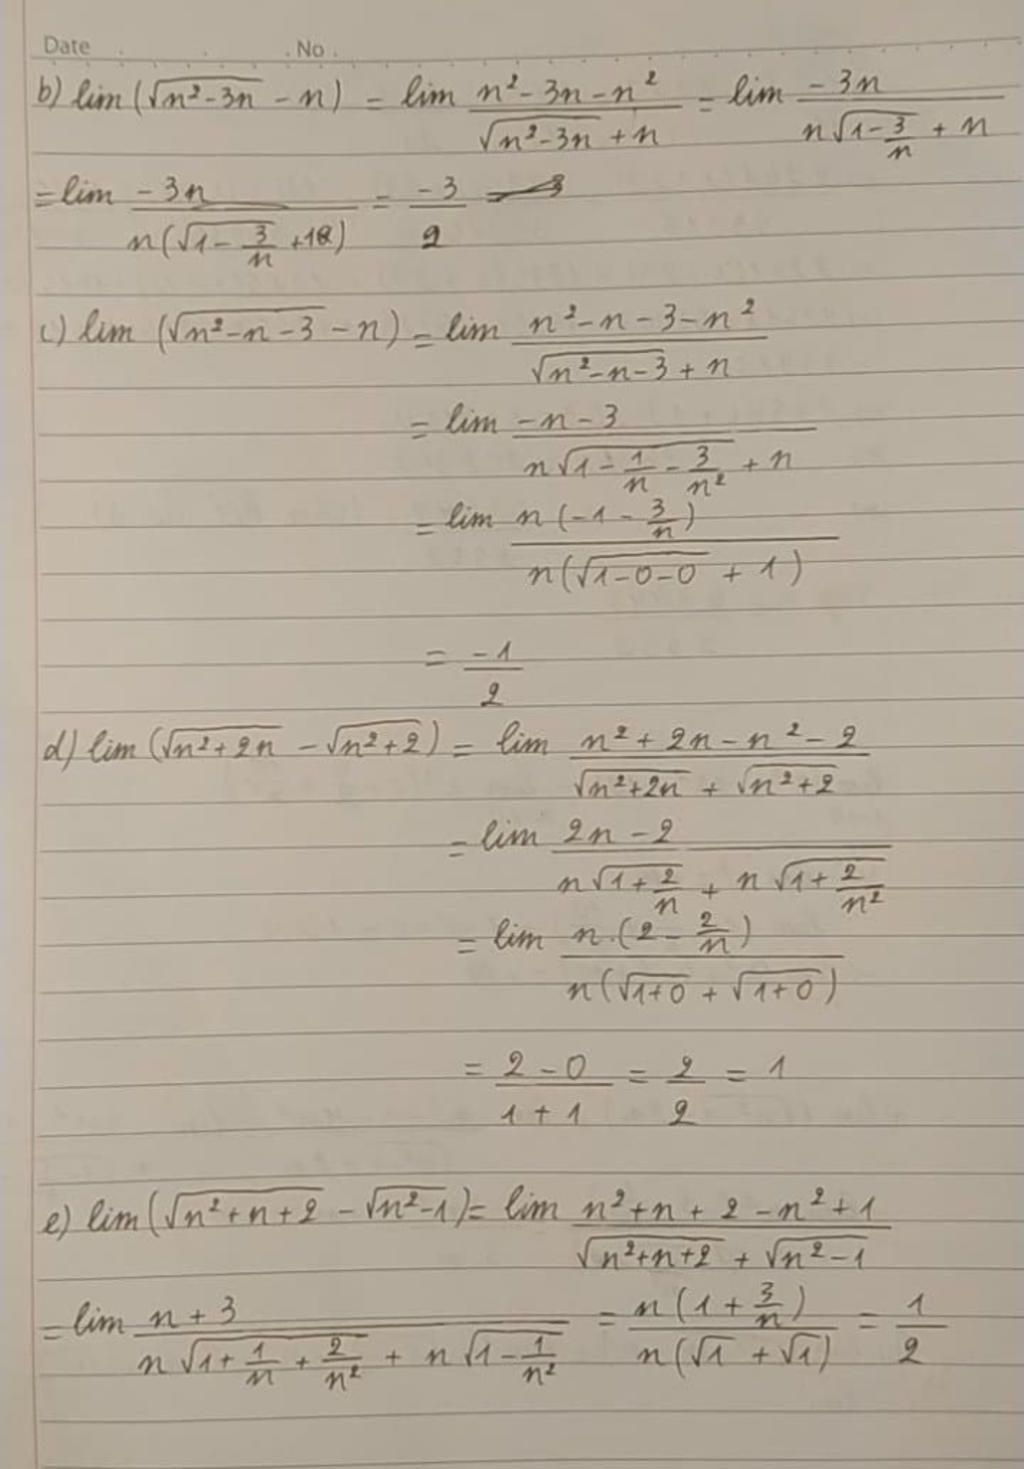 Date No.
b) lim (√(n² - 3n) - n) = lim (n² - 3n - n²)/(√(n² - 3n) + n) = lim (-3n)/(n√(1 - 3/n) + n)
= lim (-3n)/(n(√(1 - 3/n) + 1)) = -3/2
c) lim (√(n² - n - 3) - n) = lim (n² - n - 3 - n²)/(√(n² - n - 3) + n)
= lim (-n - 3)/(n√(1 - 1/n - 3/n²) + n)
= lim (n(-1 - 3/n))/(n(√(1 - 0 - 0) + 1))
= -1/2
d) lim (√(n² + 2n) - √(n² + 2)) = lim (n² + 2n - n² - 2)/(√(n² + 2n) + √(n² + 2))
= lim (2n - 2)/(n√(1 + 2/n) + n√(1 + 2/n²))
= lim (n.(2 - 2/n))/(n(√(1 + 0) + √(1 + 0)))
= (2 - 0)/(1 + 1) = 2/2 = 1
e) lim (√(n² + n + 2) - √(n² - 1)) = lim (n² + n + 2 - n² + 1)/(√(n² + n + 2) + √(n² - 1))
= lim (n + 3)/(n√(1 + 1/n + 2/n²) + n√(1 - 1/n²)) = (n(1 + 3/n))/(n(√1 + √1)) = 1/2